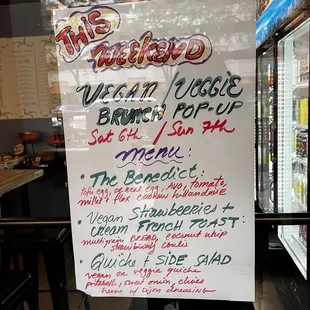 THIS
WEEKEND
VEGAN / VEGGIE
BRUNCH POP-UP
Sat 6th / Sun 7th
MENU:
• The Benedict:
tofu egg, or real egg, avo, tomato,
millet & flax cashew hollandaise
• Vegan Strawberries +
Cream FRENCH TOAST:
multigrain BREAD, coconut whip
strawberry coulis
• QUICHE + SIDE SALAD
vegan or veggie quiche
sweet onion, chives
dijon dressing